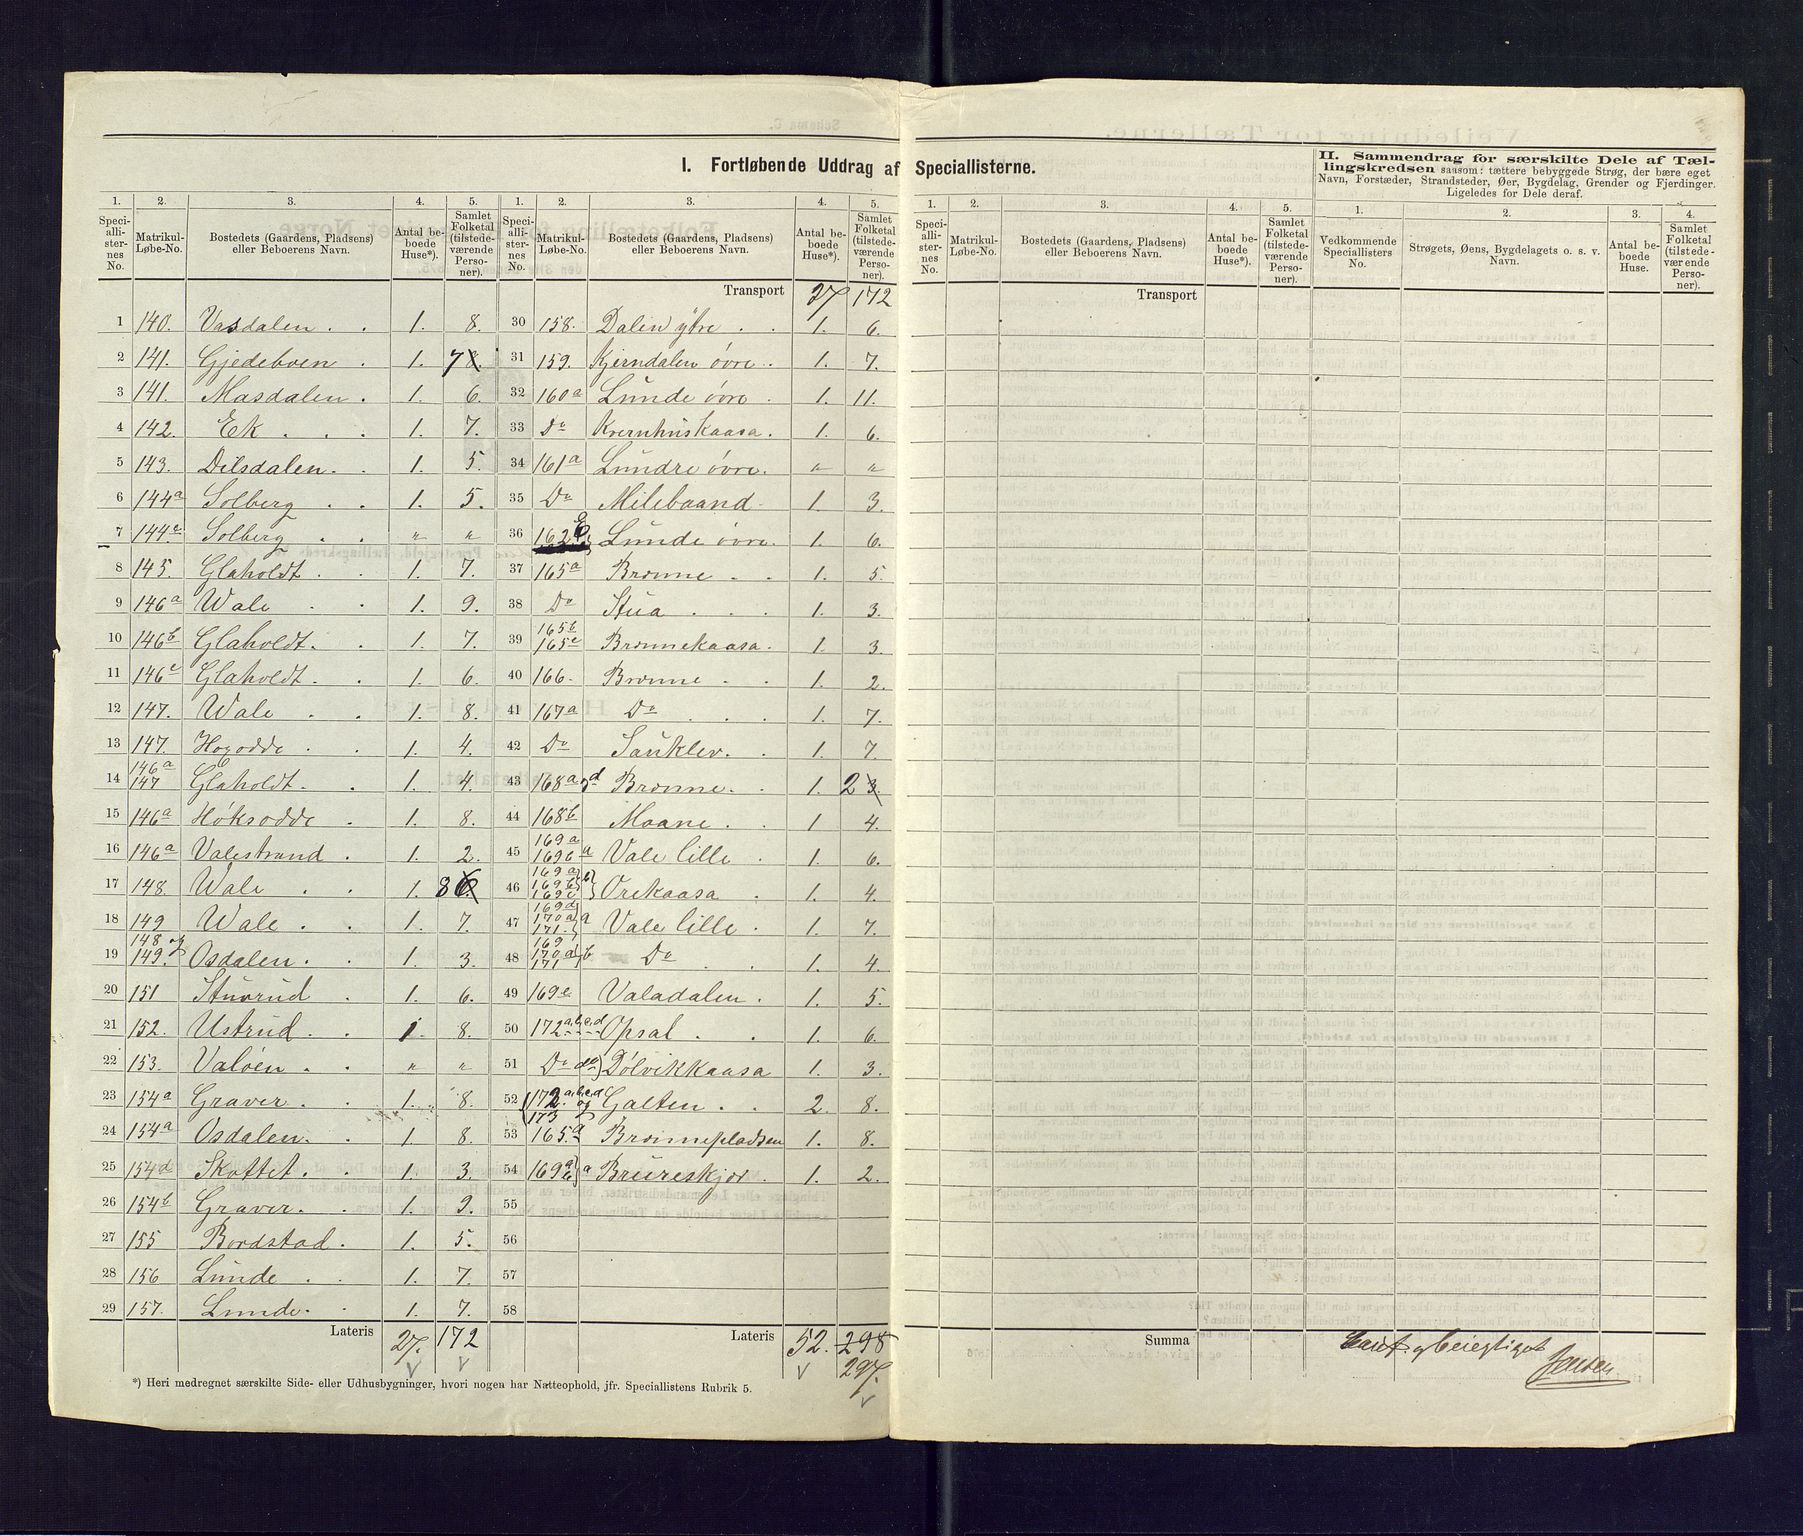 I. Fortløbende Uddrag af Speciallisterne.
II. Sammendrag for særskilte Dele af Tæl-
lingskredsen saasom: tættere bebyggede Strøg, der bære eget
Navn, Forstæder, Strandsteder, Øer, Bygdelag, Grender og Fjerdinger.
Ligeledes for Dele deraf.
1. 2. 3. 4. 5. 1. 2. 3. 4. 5. 1. 2. 3. 4. 5. 1. 2. 3. 4.
Speci-allister-nes No. Matrikul-Løbe-No. Bostedets (Gaardens, Pladsens) eller Beboerens Navn. Antal be-boede Huse*). Samlet Folketal (tilstede-værende Perso-ner).
Speci-allister-nes No. Matrikul-Løbe-No. Bostedets (Gaardens, Pladsens) eller Beboerens Navn. Antal be-boede Huse*). Samlet Folketal (tilstede-værende Perso-ner).
Speci-allister-nes No. Matrikul-Løbe-No. Bostedets (Gaardens, Pladsens) eller Beboerens Navn. Antal be-boede Huse*). Samlet Folketal (tilstede-værende Perso-ner).
Vedkommende Speciallisters No. Strøgets, Øens, Bygdelagets o. s. v. Navn. Antal be-boede Huse. Samlet Folketal (tilstede-værende Perso-ner).
1 140. Vasdalen . . 1. 8.
2 141. Gjedeboen . 1. 7 8.
3 141. Masdalen . 1. 6.
4 142. Ek . . . 1. 7.
5 143. Dilsdalen . . 1. 5.
6 144a Solberg . . 1. 5.
7 144c Solberg . . " "
8 145. Glaholdt . . 1. 7.
9 146a Wale . . 1. 9.
10 146b Glaholdt . . 1. 7.
11 146c Glaholdt . . 1. 6.
12 147. Wale . . 1. 8.
13 147. Hogodde . . 1. 4.
14 146a 147 Glaholdt . . 1. 4.
15 146a Høksodde . 1. 8.
16 146a Valestrand . 1. 2.
17 148. Wale . . 1. 8 6.
18 149 Wale . . 1. 7.
19 148 og 149. Osdalen . . 1. 3.
20 151 Stuvrud . 1. 6.
21 152. Ustrud . . 1. 8.
22 153. Valøen . . " "
23 154a Graver . . 1. 8.
24 154a Osdalen . . 1. 8.
25 154d Skottet . . 1. 3.
26 154b Graver . . 1. 9.
27 155 Bordstad . 1. 5.
28 156 Lunde . . 1. 7.
29 157. Lunde . . 1. 7.
Lateris 27. 172
Transport 27 172
30 158. Dalen ytre . . 1. 6.
31 159. Kjerndalen øvre . 1. 7.
32 160a Lunde øvre . 1. 11.
33 Do Kvernhuskaasa . 1. 6.
34 161a Lundre øvre . " "
35 Do Milebaand . 1. 3.
36 162 Lunde øvre . 1. 6.
37 165a Brønne . . 1. 5.
38 Do Stua . . . 1. 3.
39 165b 165c Brønnekaasa . 1. 3.
40 166. Brønne . . 1. 2.
41 167a Do . . . 1. 7.
42 Do Sauklev . . 1. 7.
43 168a og d Brønne . . 1. 2 3.
44 168b Moane . . 1 4.
45 169a 169b a Vale lille . 1. 6.
46 169a 169b 169c b Orekaasa . 1. 4.
47 169d 170a 171. a Vale lille . 1. 7.
48 169 170a 171 b Do . . 1. 4.
49 169e Valadalen . 1. 5.
50 172 a,b,c,d Opsal . . 1. 6.
51 Do do Dølvikkaasa 1. 3.
52 172. a,b,c,d og 173 Galten . . 2. 8.
53 165.a Brønnepladsen 1. 8.
54 169 a b a Breireskjor . 1. 2.
55
56
57
58
Lateris 52. 298
297.
Transport
Summa
og beigtiget
Jensen
*) Heri medregnet særskilte Side- eller Udhusbygninger, hvori nogen har Natteophold, jfr. Speciallistens Rubrik 5.